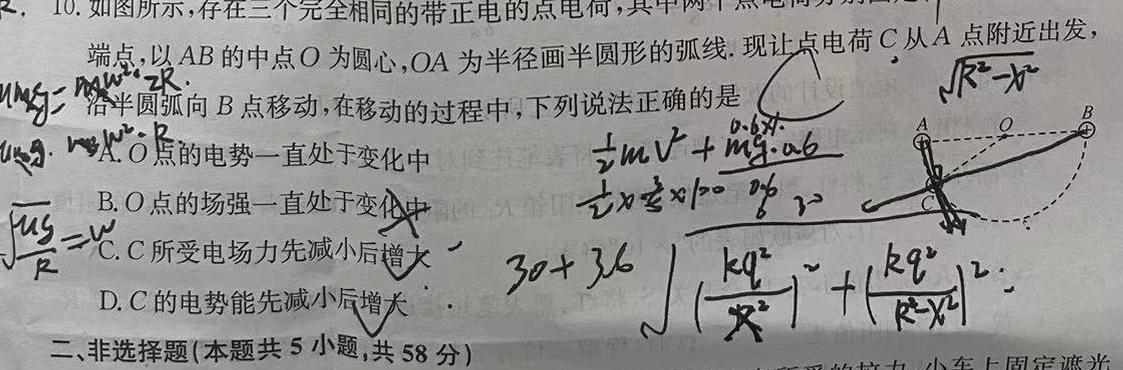 10. 如图所示,存在三个完全相同的带正电的点电荷,其中两个点电荷分别固定
端点,以 AB 的中点 O 为圆心,OA 为半径画半圆形的弧线. 现让点电荷 C 从 A 点附近出发,
沿半圆弧向 B 点移动,在移动的过程中,下列说法正确的是
A. O 点的电势一直处于变化中
B. O 点的场强一直处于变化中
C. C 所受电场力先减小后增大
D. C 的电势能先减小后增大
二、非选择题(本题共 5 小题,共 58 分)
小车上固定遮光
√R²-x²
A
O
B
C
½mV²+mg·0.6
30+36
√(kq²/x²)²+(kq²/R²-x²)²